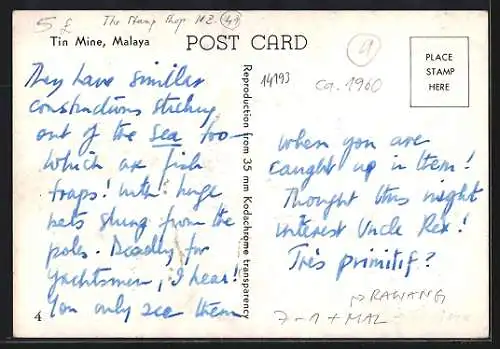 5 £ The Stamp Shop N.Z. 49
Tin Mine, Malaya
POST CARD
4
14193
ca. 1960
PLACE
STAMP
HERE
They have similar
constructions sticking
out of the sea too -
which are fish
traps! With huge
nets slung from the
poles. Deadly for
yachtsmen, I hear!
You only see them
4
Reproduction from 35 mm Kodachrome transparency
when you are
caught up in them!
Thought this might
interest Uncle Rex!
Très primitif?
RAWANG
7-1 + MAL